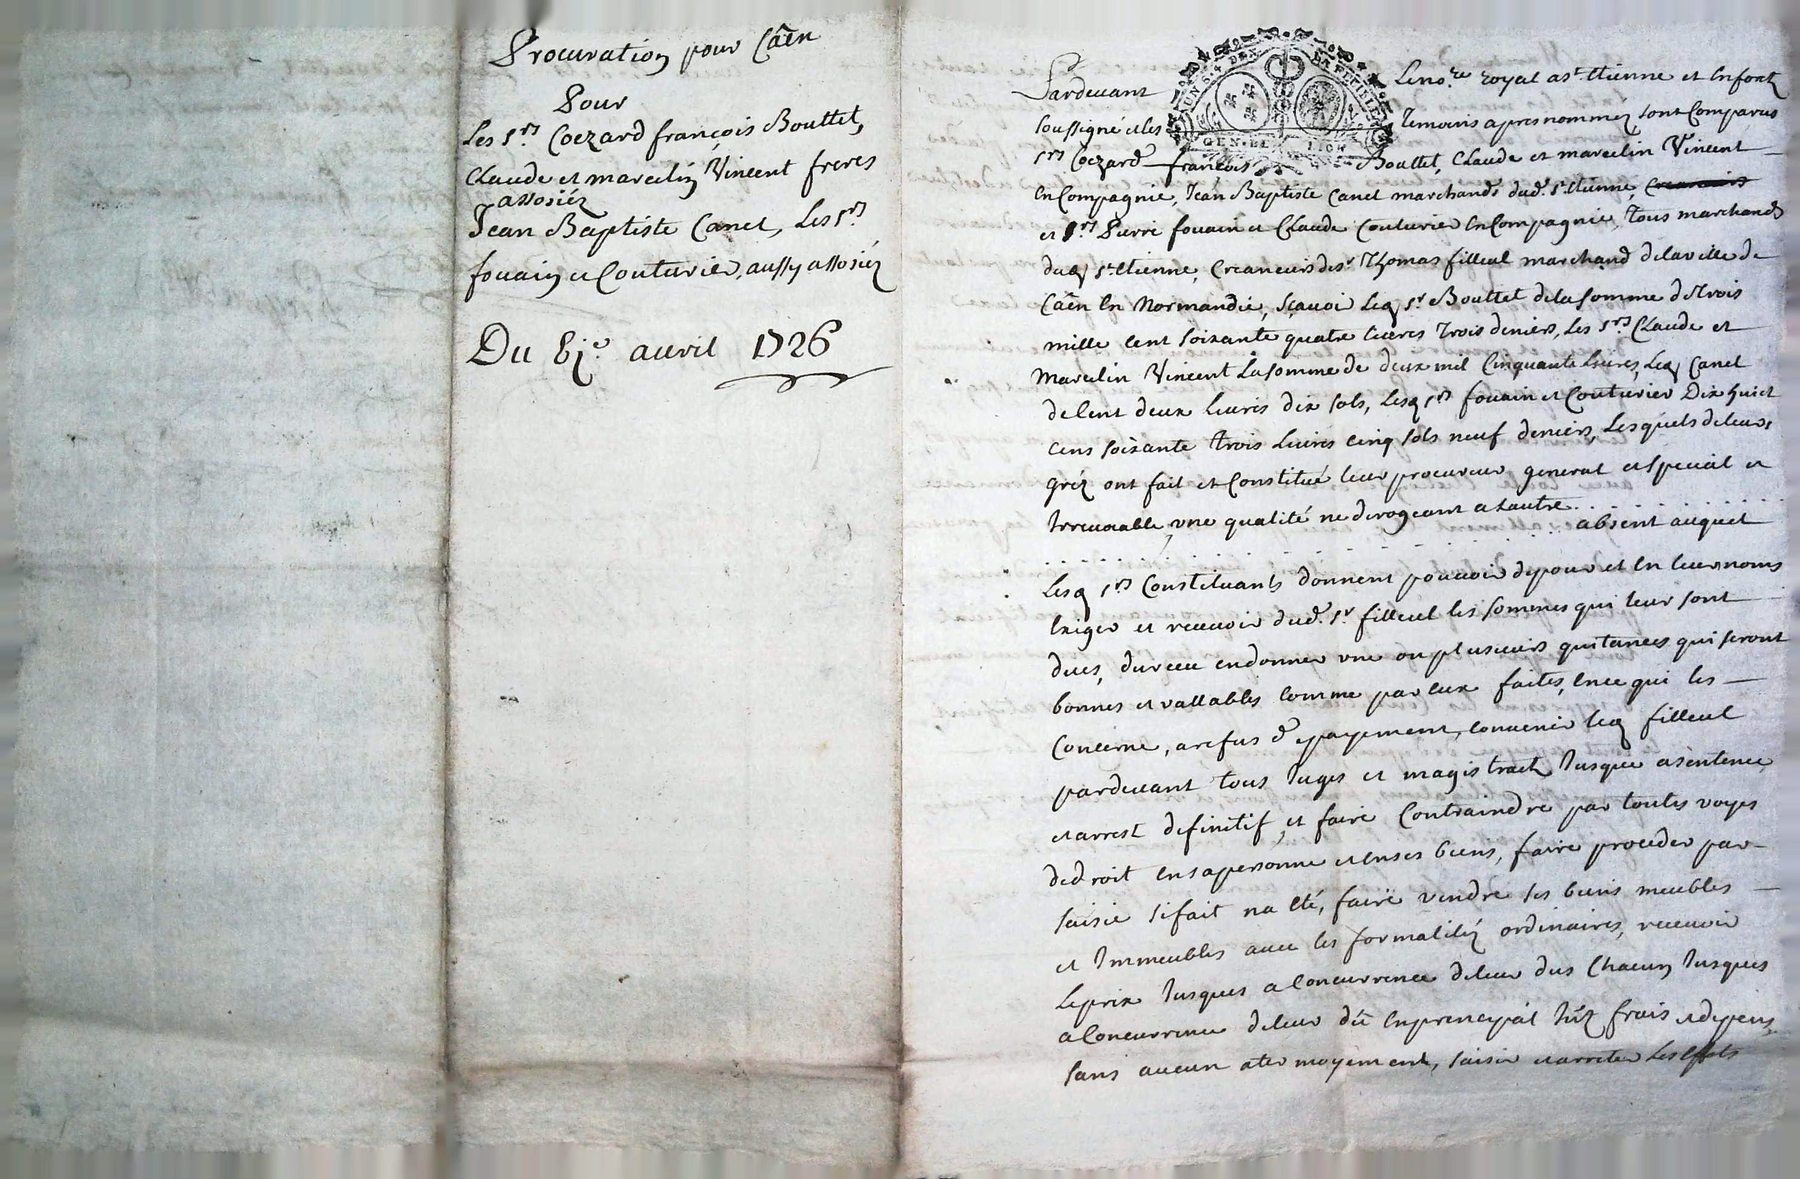 Procuration pour Câen
Pour
Les Srs Coezard françois Bouttet,
Claude et marcelin Vincent freres
associéz
Jean Baptiste Canet, Les Srs
fouain et Couturier, aussy associéz
Du avril 1726
Pardevant Le nore royal a St Etienne et En forêz
soussigné et les Temoins apres nomméz, sont Comparus
Srs Coezard françois Bouttet, Claude et marcelin Vincent
En Compagnie, Jean Baptiste Canet marchands dud. St Etienne,
et Srs Pierre fouain et Claude Couturier En Compagnie, Tous marchands
dudt St Etienne, Creanciers du sr Thomas filleul marchand de la ville de
Câen En Normandie, sçavoir Led sr Bouttet de la somme de Trois
mille Cent soixante quatre livres Trois deniers, Les Srs Claude et
Marcelin Vincent La somme de deux mil Cinquante Livres, Led Canet
de Cent deux Livres dix sols, Lesd srs fouain et Couturier Dix huict
Cens soixante Trois Livres Cinq sols neuf deniers, Lesquels de leurs
gréz ont fait et Constitué leur procureur general et special et
Irrevocable, une qualité ne derogeant a L'autre . . . . . . . .
. . . . . . . . . . . . . absent auquel
Lesd srs Constituants donnent pouvoir de pour et En leurs noms
Exiger et recevoir dud. sr filleul les sommes qui leur sont
dues, du receu en donner une ou plusieurs quitances qui seront
bonnes et vallables Comme par Eux faites, En ce qui les
Concerne, a refus de payement, Convenir led filleul
pardevant tous Juges et magistrach Jusques a sentence
et arrest definitif, et faire Contraindre par toutes voyes
de droit En sa personne et En ses biens, faire proceder par
saisie si fait n'a eté, faire vendre ses biens meubles
et Immeubles avec les formalitéz ordinaires, recevoir
Le prix Jusques a Concurrence de leur dus Chacun Jusques
a Concurrence de leur dû En principal frais et depens,
sans aucun atermoyement, saisir et arreter Les Effets